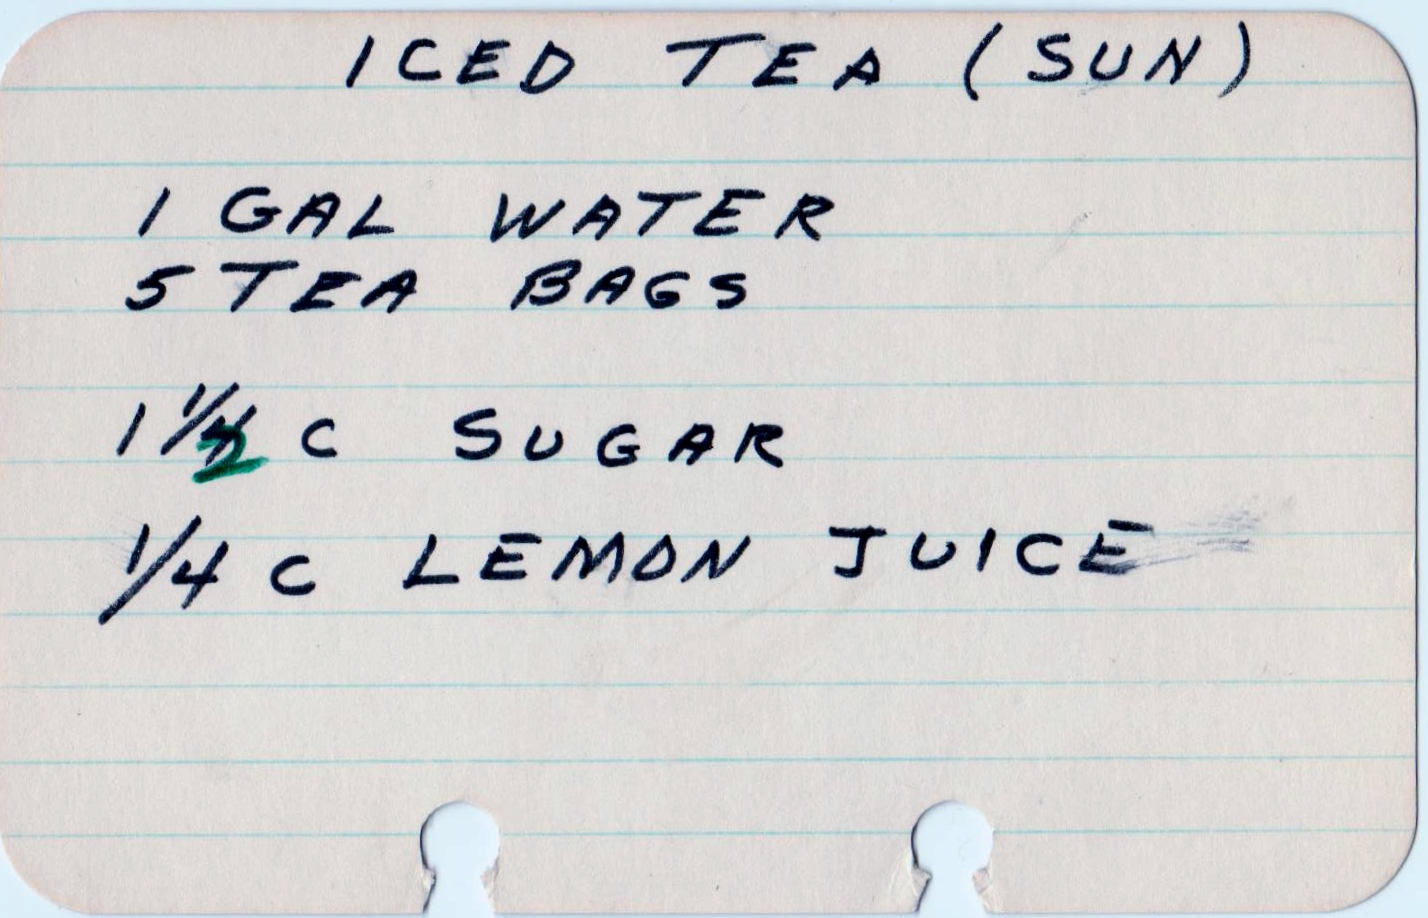 ICED TEA (SUN)
1 GAL WATER
5 TEA BAGS
1 1/2 C SUGAR
1/4 C LEMON JUICE